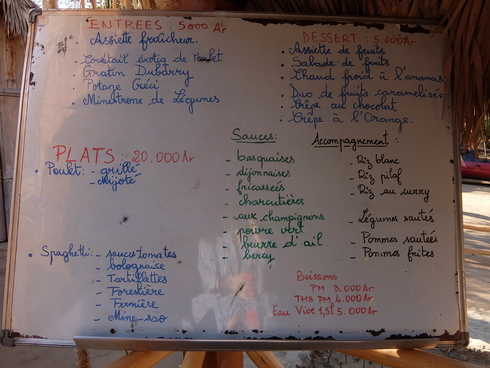 ENTREES : 5000 Ar
Assiette fraîcheur
. Cocktail éxotiq de
. Gratin Dubarry
. Potage Crécy
. Minestrone de Légumes
DESSERT : 5.000 Ar
. Assiette de fruits
. Salade de fruits
. Chaud froid à l'ananas
. Duo de fruits caramelisés
. Crêpe au chocolat
. Crêpe à l'Orange.
PLATS : 20.000 Ar
. Poulet : - grillé
- Mijoté
. Spaghetti : - sauce tomates
- bolognaise
- Tartiflettes
- Forestière
- Farmière
- Mine-sao
Sauces:
- basquaises
- dijonnaises
- fricassées
- charcutières
- aux champignons
- poivre vert
- beurre d'ail
- bercy
Accompagnement :
- Riz blanc
- Riz pilaf
- Riz au curry
- Légumes sautés
- Pommes sautées
- Pommes frites
Boissons
PM 3.000 Ar
THB PM 4.000 Ar
Eau Vive 1,5L 5.000 Ar